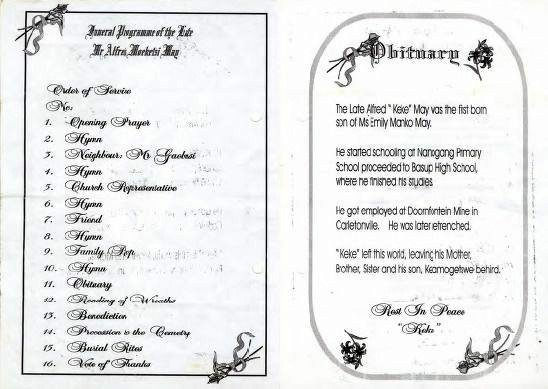 Funeral Programme of the Late
Mr Alfred Moeketsi May
Order of Service
No:
1. Opening Prayer
2. Hymn
3. Neighbour: Mr Gaobusi
4. Hymn
5. Church Representative
6. Hymn
7. Friend
8. Hymn
9. Family Rep
10. Hymn
11. Obituary
12. Reading of Wreaths
13. Benediction
14. Procession to the Cemetry
15. Burial Rites
16. Vote of Thanks
Obituary
The Late Alfred "Keke" May was the first born
son of Ms Emily Manko May.
He started schooling at Nanogang Primary
School proceeded to Basup High School,
where he finished his studies.
He got employed at Doornfontein Mine in
Carletonville. He was later etrenched.
"Keke" left this world, leaving his Mother,
Brother, Sister and his son, Keamogetswe behind.
Rest In Peace
"Keke"